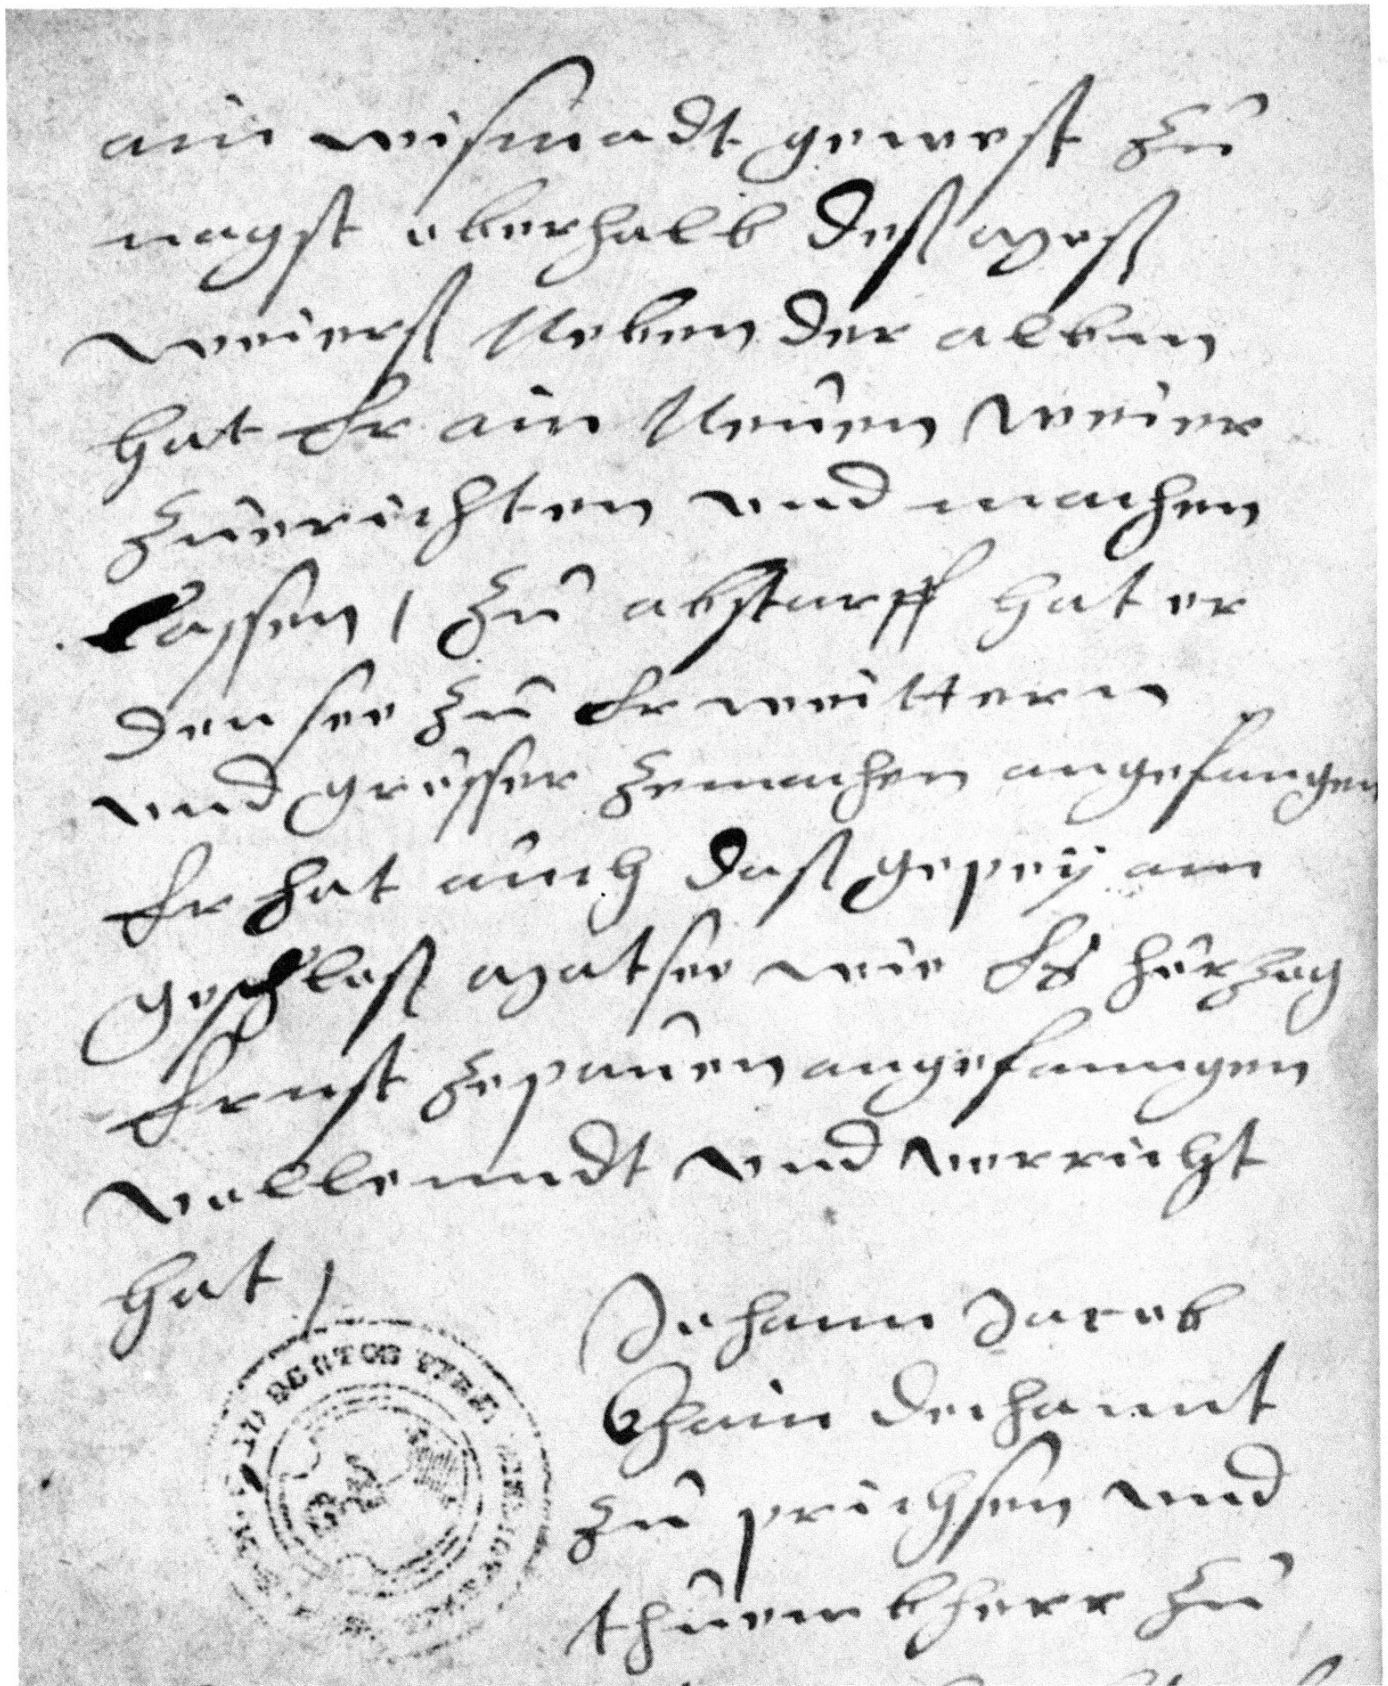 ain wismadt gewest zu
negst oberhalb deß
weierß Neben der alben
hat Er ain Neuen weier
zuerichten vnd machen
lassen / zu abstorff hat er
den see zu Erweittern
vnd grösser zemachen angefangen
Er hat auch daß gepey am
geschloß matsee wie Es herzog
Ernst zepauen angefanngen
vollenndt vnd verricht
hat /
Johann Jacob
Khain dechannt
zu prichsen vnd
thuembherr zu